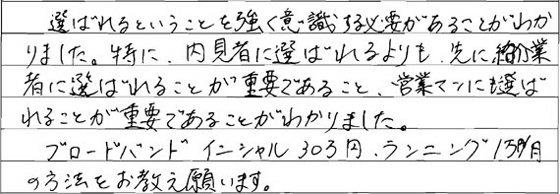 選ばれるということを強く意識する必要があることがわか
りました。特に、内見者に選ばれるよりも、先に仲介業
者に選ばれることが重要であること、営業マンにも選ば
れることが重要であることがわかりました。
ブロードバンド イニシャル 30万円、ランニング 1万円/月
の方法をお教え願います。